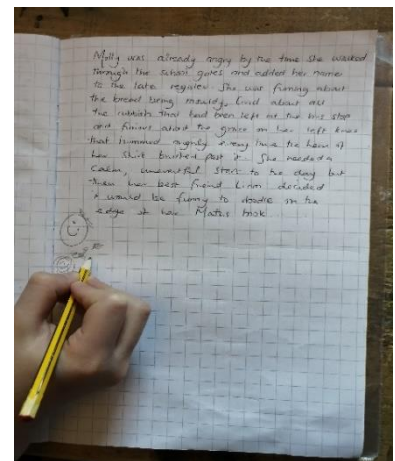 Molly was already angry by the time she walked
through the school gates and added her name
to the late register. She was fuming about
the bread being mouldy, livid about all
the rubbish that had been left at the bus stop
and furious about the graze on her left knee
that hummed angrily every time the hem of
her skirt brushed past it. She needed a
calm, uneventful start to the day but
then her best friend decided
it would be funny to doodle on the
edge of her Maths book